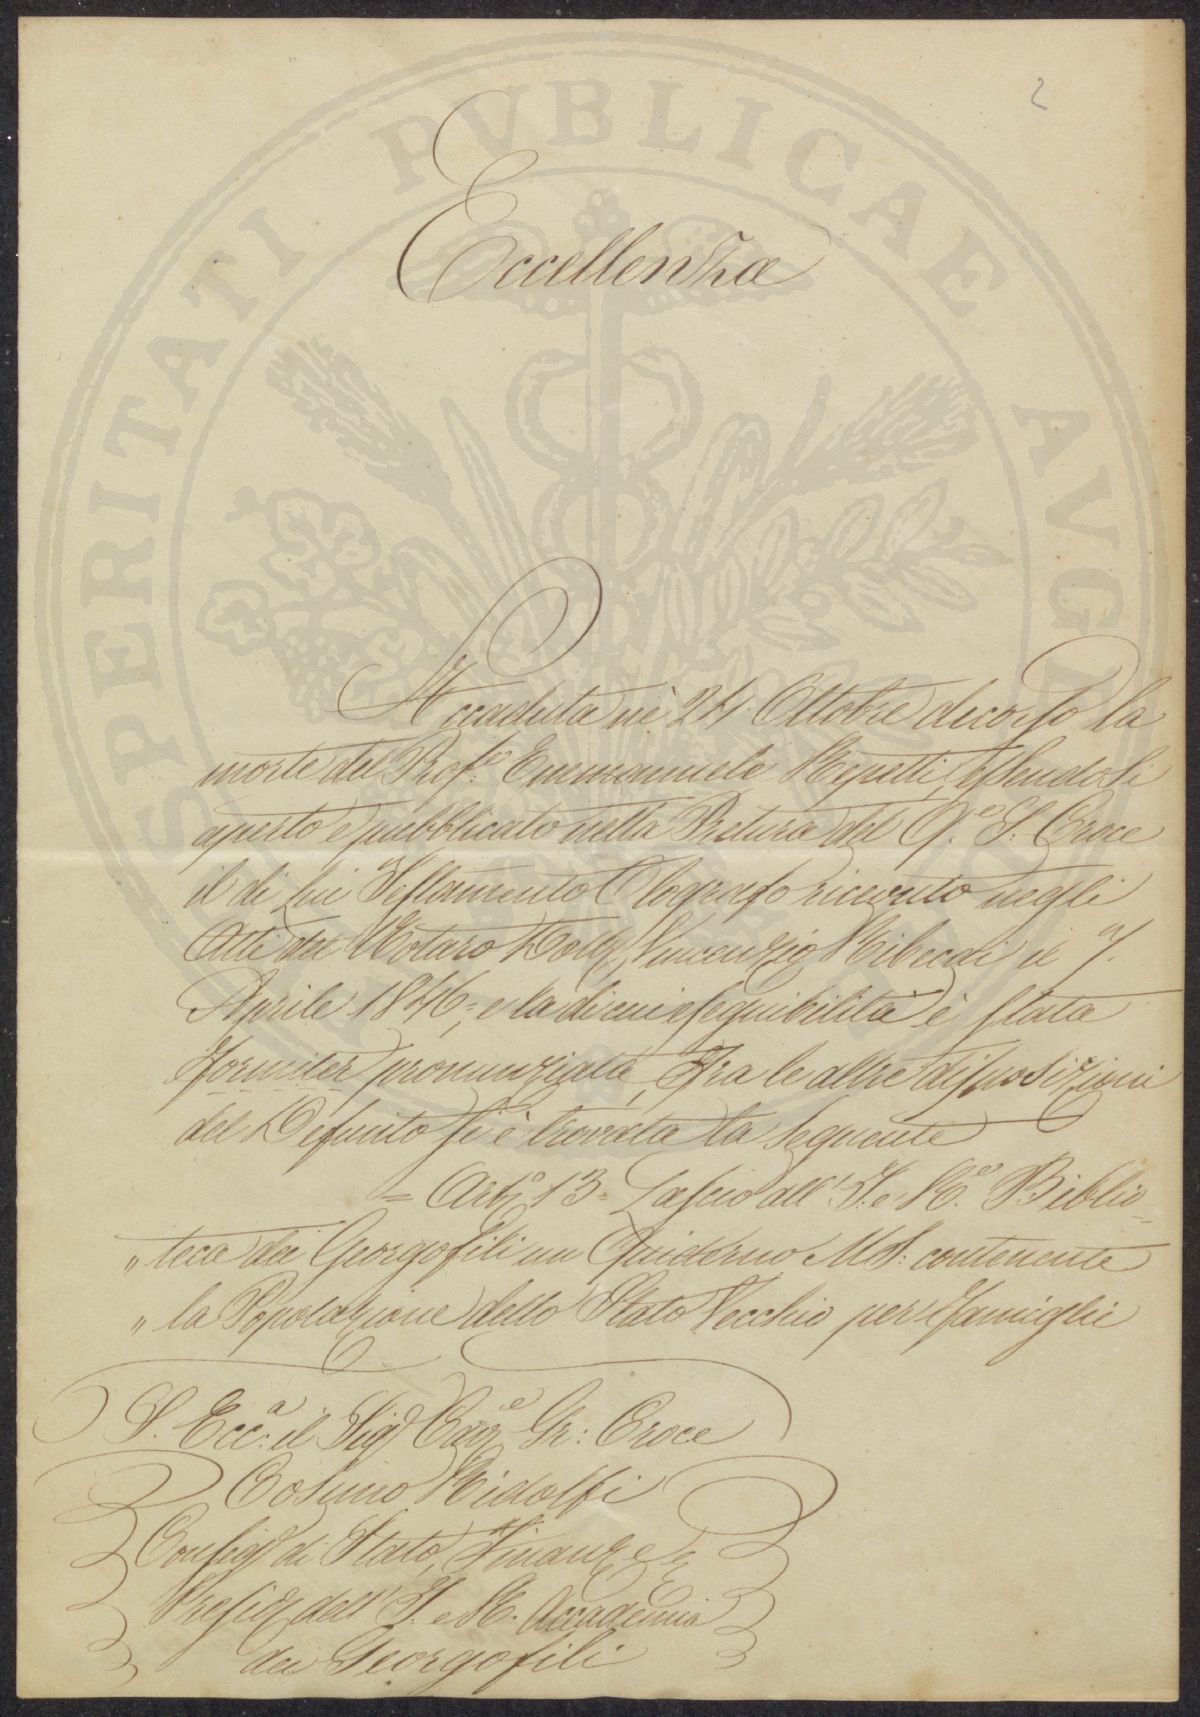 PROSPERITATI PVBLICAE AVGENDAE
2
Eccellenza
Accaduta nè 24. Ottobre decorso la
morte del Prof.e Emmanuele Repetti, essendosi
aperto e pubblicato nella Pretura del Q.re S. Croce
il di lui Testamento Olografo ricevuto negli
Atti del Notaro Dott. Vincenzio Ribecai il 7.
Aprile 1846; e la di cui eseguibilità è stata
formiter pronunziata, Fra le altre disposizioni
del Defunto si è trovata la seguente
= Arto. 13 = Lascio all'I. e R.e Biblio=
" teca dei Georgofili un Quiderno MS: contenente
" la Popolazione dello Stato Vecchio per famiglie
S. Ecc.a il Sig. Cav.e Gr: Croce
Cosimo Ridolfi
Consig. di Stato, Finanze e
Presid. dell'I. e R. Accademia
dei Georgofili